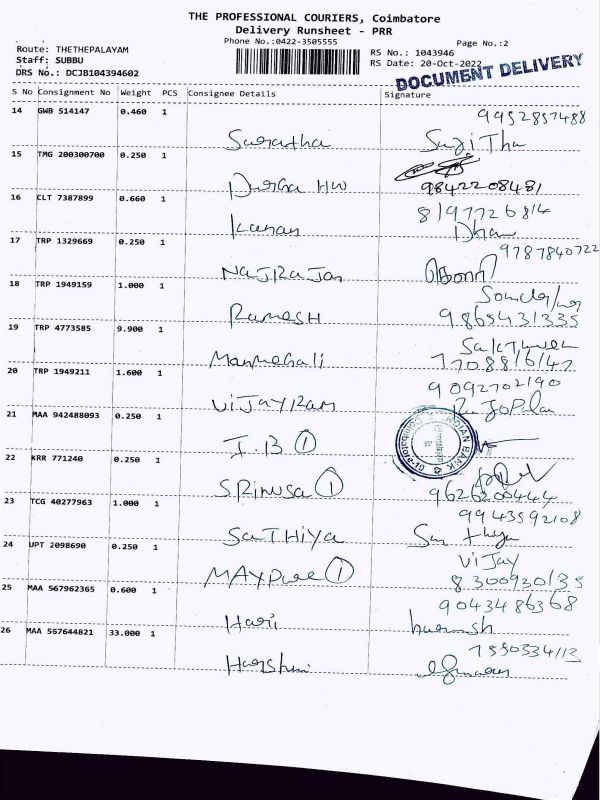 THE PROFESSIONAL COURIERS, Coimbatore
Delivery Runsheet - PRR
Phone No.:0422-3505555
Page No.:2
Route: THETHEPALAYAM
RS No.: 1043946
Staff: SUBBU
RS Date: 20-Oct-2022
DRS No.: DCJB104394602
DOCUMENT DELIVERY
S No Consignment No Weight PCS Consignee Details Signature
14 GWB 514147 0.460 1
9952857488
Sugitha
15 TMG 200300700 0.250 1
Durga HW 9842208481
16 CLT 7387899 0.660 1
8197726814
Kanan
17 TRP 1329669 0.250 1
9787840722
Natrajan
18 TRP 1949159 1.000 1
Ramesh 9865431335
19 TRP 4773585 9.900 1
Manmegali 7708816142
20 TRP 1949211 1.600 1
9092702190
Vijayram
21 MAA 942488093 0.250 1
I.B ①
INDIAN BANK
22 KRR 771240 0.250 1
SRINUSA ① 9626200444
23 TCG 40277963 1.000 1
9943592108
SATHIYA
24 UPT 2098690 0.250 1
Vijay
MAYPURE ① 8300930135
25 MAA 567962365 0.600 1
9043486368
Hari
26 MAA 567644821 33.000 1
7550334113
Harshini